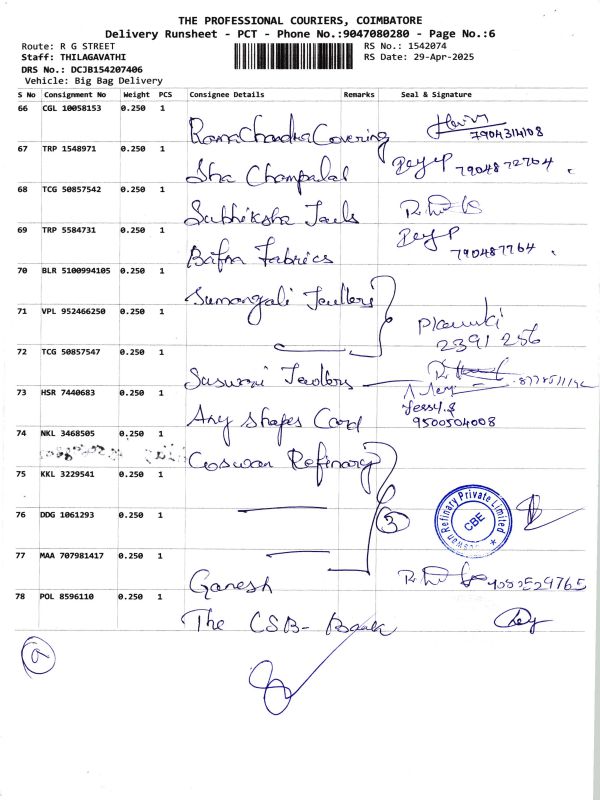 THE PROFESSIONAL COURIERS, COIMBATORE
Delivery Runsheet - PCT - Phone No.:9047080280 - Page No.:6
Route: R G STREET RS No.: 1542074
Staff: THILAGAVATHI RS Date: 29-Apr-2025
DRS No.: DCJB154207406
Vehicle: Big Bag Delivery
S No Consignment No Weight PCS Consignee Details Remarks Seal & Signature
66 CGL 10058153 0.250 1
RamaChandra Covering 7904314108
67 TRP 1548971 0.250 1
Sha Champalal 7904872764
68 TCG 50857542 0.250 1
Subhiksha Jewls
69 TRP 5584731 0.250 1
Bafna Fabrics 790487764
70 BLR 5100994105 0.250 1
Sumangali Jewllers
71 VPL 952466250 0.250 1
2391256
72 TCG 50857547 0.250 1
Jewllers
73 HSR 7440683 0.250 1
Any Shapes Card Jessy.S
9500504008
74 NKL 3468505 0.250 1
Goswan Refinary
75 KKL 3229541 0.250 1
76 DDG 1061293 0.250 1
3
Refinary Private Limited
CBE
77 MAA 707981417 0.250 1
Ganesh
78 POL 8596110 0.250 1
The CSB- Bank